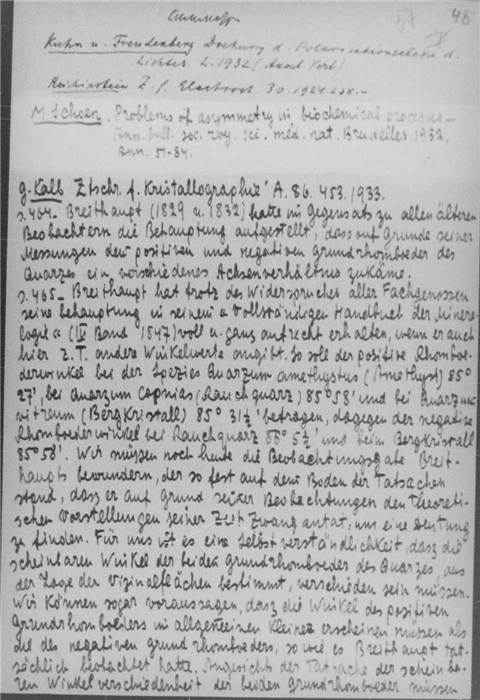 48
Kuhn u. Freudenberg Drehung d. Polarisationsebene d.
Lichtes. L. 1932 (Akad Verl)
Z. f. Electroch. 30. 1924
M. Schoen. Problems of asymmetry in biochemical processes —
Ann. bull. soc. roy. sci. med. nat. Bruxelles 1932.
Ann. 51-84.
g. Kalb Ztschr. f. Kristallographie A. 86. 453. 1933.
s. 464 — Breithaupt (1829 u. 1832) hatte im Gegensatz zu allen älteren
Beobachtern die Behauptung aufgestellt, dass auf Grunde seiner
Messungen dem positiven und negativen Grundrhomboeder des
Quarzes ein verschiedenes Achsenverhältnis zukäme.
s. 465 — Breithaupt hat trotz des Widerspruches aller Fachgenossen
seine Behauptung in seinem "Vollständigen Handbuch der Minera-
logie" (IV Band 1847) voll u. ganz aufrecht erhalten, wenn er auch
hier z. T. andere Winkelwerte angibt. So sole der positive Rhomboe-
derwinkel bei der Spezies Quarzum amethystus (Amethyst) 85°
27', bei Quarzum Capnias (Rauchquarz) 85°58' und bei Quarzum
vitreum (Bergkristall) 85° 31½' betragen, dagegen der negative
Rhomboederwinkel bei Rauchquarz 5½' und beim Bergkristall
85°58'. Wir müßen noch heute die Beobachtungsgabe Breit-
haupts bewundern, der so fest auf dem Boden der Tatsachen
stand, dasz er auf Grund seiner Beobachtungen den theoreti-
schen Vorstellungen seiner Zeit Zwang antat, um eine Deutung
zu finden. Für uns ist es eine Selbstverständlichkeit, dasz die
scheinbaren Winkel der beiden Grundrhomboeder des Quarzes, aus
der Lage der Vizinalflächen bestimmt, verschieden sein müssen.
Wir können sogar voraussagen, dasz die Winkel des positiven
Grundrhomboeders im allgemeinen kleiner erscheinen müssen als
die des negativen Grundrhomboeders, so wie es Breithaupt tat-
sächlich beobachtet hatte. Angesichts der Tatsache der scheinba-
ren Winkelverschiedenheit der beiden Grundrhomboeder müssen